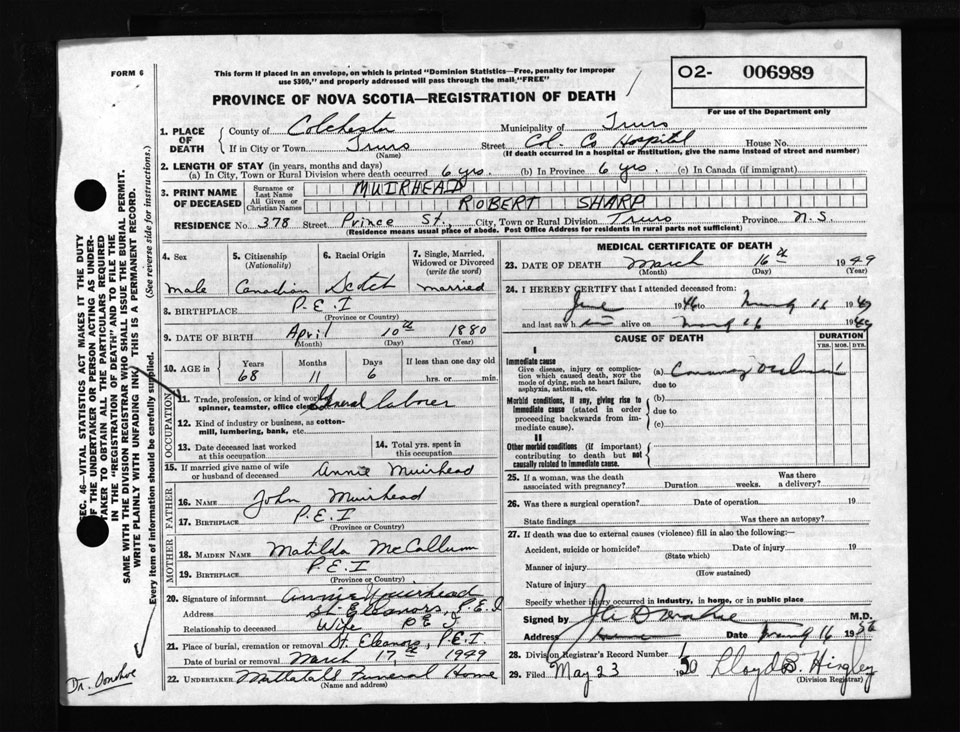 FORM 6
This form if placed in an envelope, on which is printed "Dominion Statistics—Free, penalty for improper
use $300," and properly addressed will pass through the mail, "FREE"
O2- 006989
For use of the Department only
PROVINCE OF NOVA SCOTIA—REGISTRATION OF DEATH
1. PLACE OF DEATH
County of Colchester Municipality of Truro
If in City or Town Truro Street Col. Co Hospital House No.
(Name) (If death occurred in a hospital or institution, give the name instead of street and number)
2. LENGTH OF STAY (in years, months and days)
(a) In City, Town or Rural Division where death occurred 6 yrs. (b) In Province 6 yrs. (c) In Canada (if immigrant)
3. PRINT NAME OF DECEASED
Surname or Last Name MUIRHEAD
All Given or Christian Names ROBERT SHARP
RESIDENCE No. 378 Street Prince St., City, Town or Rural Division Truro Province N.S.
(Residence means usual place of abode. Post Office Address for residents in rural parts not sufficient)
4. Sex
male
5. Citizenship (Nationality)
Canadian
6. Racial Origin
Scotch
7. Single, Married, Widowed or Divorced (write the word)
married
8. BIRTHPLACE P.E.I
(Province or Country)
9. DATE OF BIRTH April 10th 1880
(Month) (Day) (Year)
10. AGE in Years Months Days If less than one day old
68 11 6 hrs. or min.
OCCUPATION
11. Trade, profession, or kind of work
spinner, teamster, office General Laborer
12. Kind of industry or business, as cotton-
mill, lumbering, bank, etc.
13. Date deceased last worked at this occupation
14. Total yrs. spent in this occupation
15. If married give name of wife or husband of deceased Annie Muirhead
FATHER
16. NAME John Muirhead
17. BIRTHPLACE P.E.I
(Province or Country)
MOTHER
18. MAIDEN NAME Matilda McCallum
19. BIRTHPLACE P.E.I
(Province or Country)
20. Signature of informant Annie Muirhead
Address St. Eleanors, P.E.I
Relationship to deceased Wife P E I
21. Place of burial, cremation or removal St. Eleanors, P.E.I.
Date of burial or removal March 17th 1949
22. UNDERTAKER Mattatall Funeral Home
(Name and address)
MEDICAL CERTIFICATE OF DEATH
23. DATE OF DEATH March 16th 1949
(Month) (Day) (Year)
24. I HEREBY CERTIFY that I attended deceased from:
June 1946 to 16 1949
and last saw him alive on 16 1949
CAUSE OF DEATH DURATION
YRS. MOS. DYS.
I
Immediate cause
Give disease, injury or complica-
tion which caused death, not the
mode of dying, such as heart failure,
asphyxia, asthenia, etc.
(a)
due to
Morbid conditions, if any, giving rise to
immediate cause (stated in order
proceeding backwards from im-
mediate cause).
(b)
due to
(c)
II
Other morbid conditions (if important)
contributing to death but not
causally related to immediate cause.
25. If a woman, was the death associated with pregnancy? Duration weeks. Was there a delivery?
26. Was there a surgical operation? Date of operation 19
State findings Was there an autopsy?
27. If death was due to external causes (violence) fill in also the following:—
Accident, suicide or homicide? Date of injury 19
(State which)
Manner of injury
(How sustained)
Nature of injury
Specify whether injury occurred in industry, in home, or in public place
Signed by M.D.
Address Date 16 19
28. Division Registrar's Record Number
29. Filed May 23 Lloyd B. Hingley
(Division Registrar)
SEC. 46—VITAL STATISTICS ACT MAKES IT THE DUTY
OF THE UNDERTAKER OR PERSON ACTING AS UNDER-
TAKER TO OBTAIN ALL THE PARTICULARS REQUIRED
IN THE "REGISTRATION OF DEATH" AND TO FILE THE
SAME WITH THE DIVISION REGISTRAR WHO SHALL ISSUE THE BURIAL PERMIT.
WRITE PLAINLY WITH UNFADING INK. THIS IS A PERMANENT RECORD.
Every item of information should be carefully supplied. (See reverse side for instructions.)
Dr. Donohoe